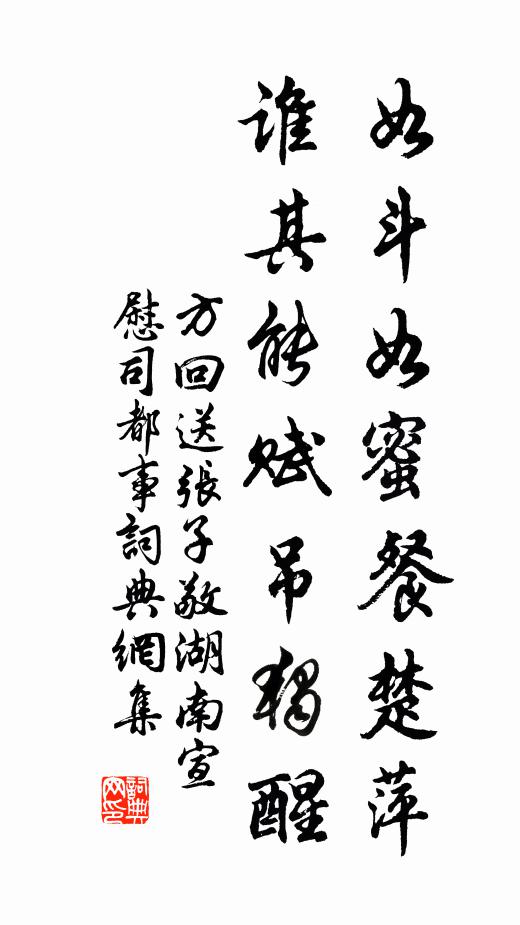 如斗如蜜餐楚萍
谁其能赋吊独醒
方回送張子敬湖南宣
慰司都事詞典網集
詞典
网印